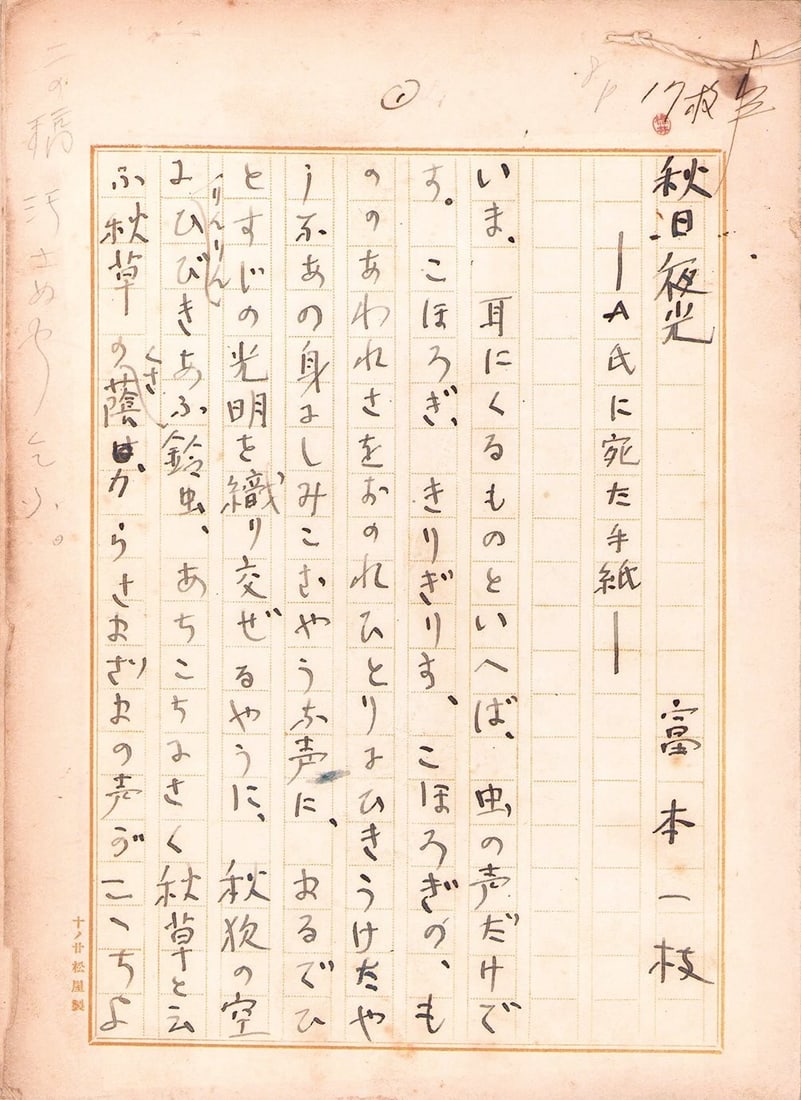 17枚
1
秋日夜光　富本一枝
―A氏に宛た手紙―
いま、耳にくるものといへば、虫の声だけで
す。こほろぎ、きりぎりす、こほろぎの、も
のゝあわれさをおのれひとりにひきうけたや
うなあの身にしみこむやうな声に、まるでひ
とすじの光明を織り交ぜるやうに、秋夜の空
りんりん
にひびきあふ鈴虫、あちこちにさく秋草と云
くさ
ふ秋草の蔭からさまざまの声がこゝちよ
十ノ廿松屋製